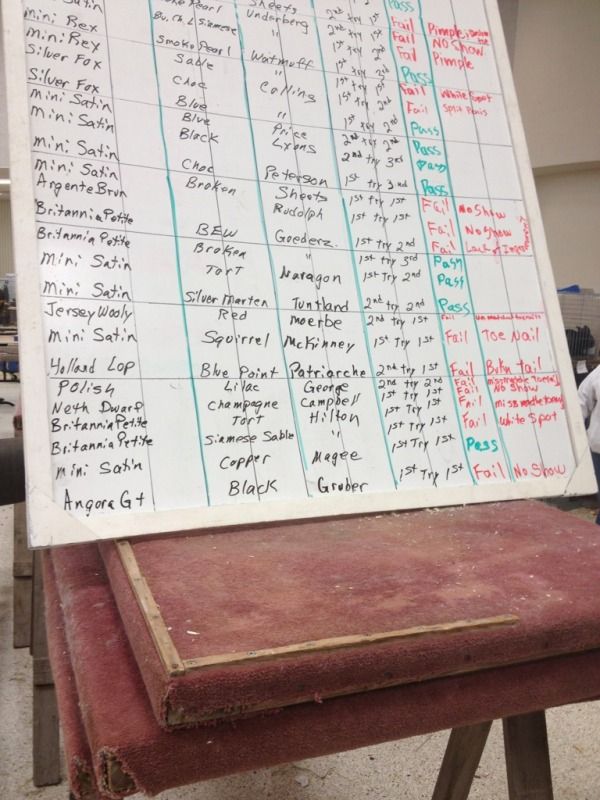 Satin Smoke Pearl Sheets Pass
Mini Rex Bu. Ch. L Siamese Underberg 2nd try 2nd Fail Pimple,
Mini Rey Smoke Pearl " 1st try 2nd Fail No Show
Silver Fox Sable Waitmuff 1st try 2nd Fail Pimple
Silver Fox Choc " 1st try 2nd Pass
Mini Satin Blue Calling 1st try Fail White Spot
Mini Satin Blue " 1st try 2nd Fail Split Penis
Mini Satin Black Price 2nd try 2nd Pass
Lyons 2nd try 3rd Pass
Mini Satin Choc Peterson 1st try 3rd Pass
Argente Brun Broken Sheets 1st try 1st Pass
Britannia Petite Rudolph 1st try 1st Fail No Show
Britannia Petite BEW Goederz 1st try 2nd Fail No Show
Mini Satin Broken 1st Try 3rd Fail Lack of
Mini Satin Tort Naragon Pass
Pass
Jersey Wooly Silver Marten Tuntland 2nd try 2nd Pass
Mini Satin Red Moerbe 2nd try 1st Fail
Squirrel McKinney 1st Try 1st Fail Toe Nail
Holland Lop Blue Point Patriarche 2nd try 1st Fail Bukn tail
Polish Lilac George 2nd try 2nd Fail
Neth Dwarf Champagne Campbell 1st try 1st Fail No Show
Britannia Petite Tort Hilton 1st try 1st Fail
Britannia Petite Siamese Sable " 1st try 1st Fail White Spot
Mini Satin Copper Magee 1st Try 1st Pass
Angora Gt Black Gruber 1st Try 1st Fail No Show